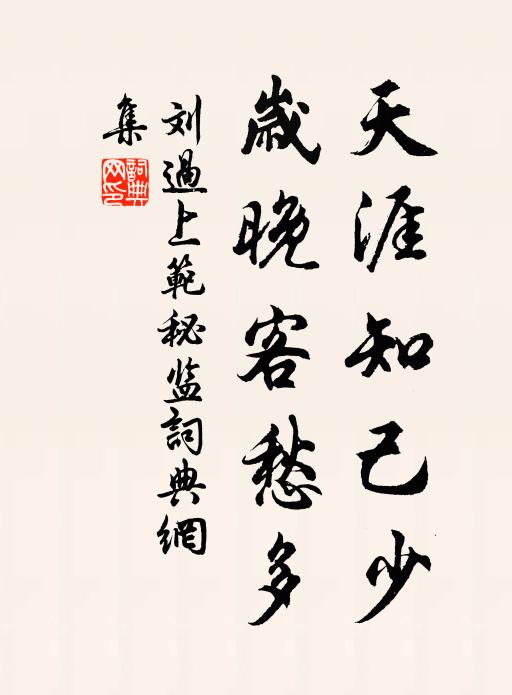 天涯知己少
歲晚客愁多
刘過上範秘监詞典網
集
詞典網印